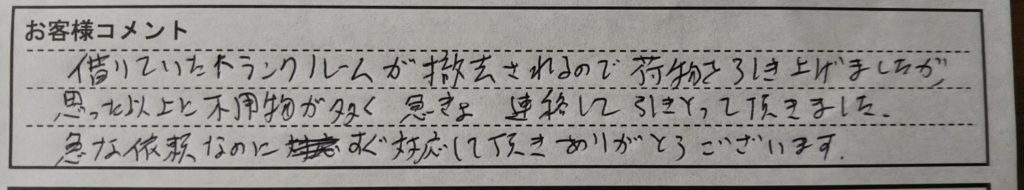 お客様コメント
借りていたトランクルームが撤去されるので荷物を引き上げましたが
思った以上に不用物が多く 急きょ 連絡して引きとって頂きました。
急な依頼なのに すぐ対応して頂きありがとうございます。